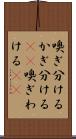 嗅ぎ分ける
かぎ分ける
嗅ぎわ
ける